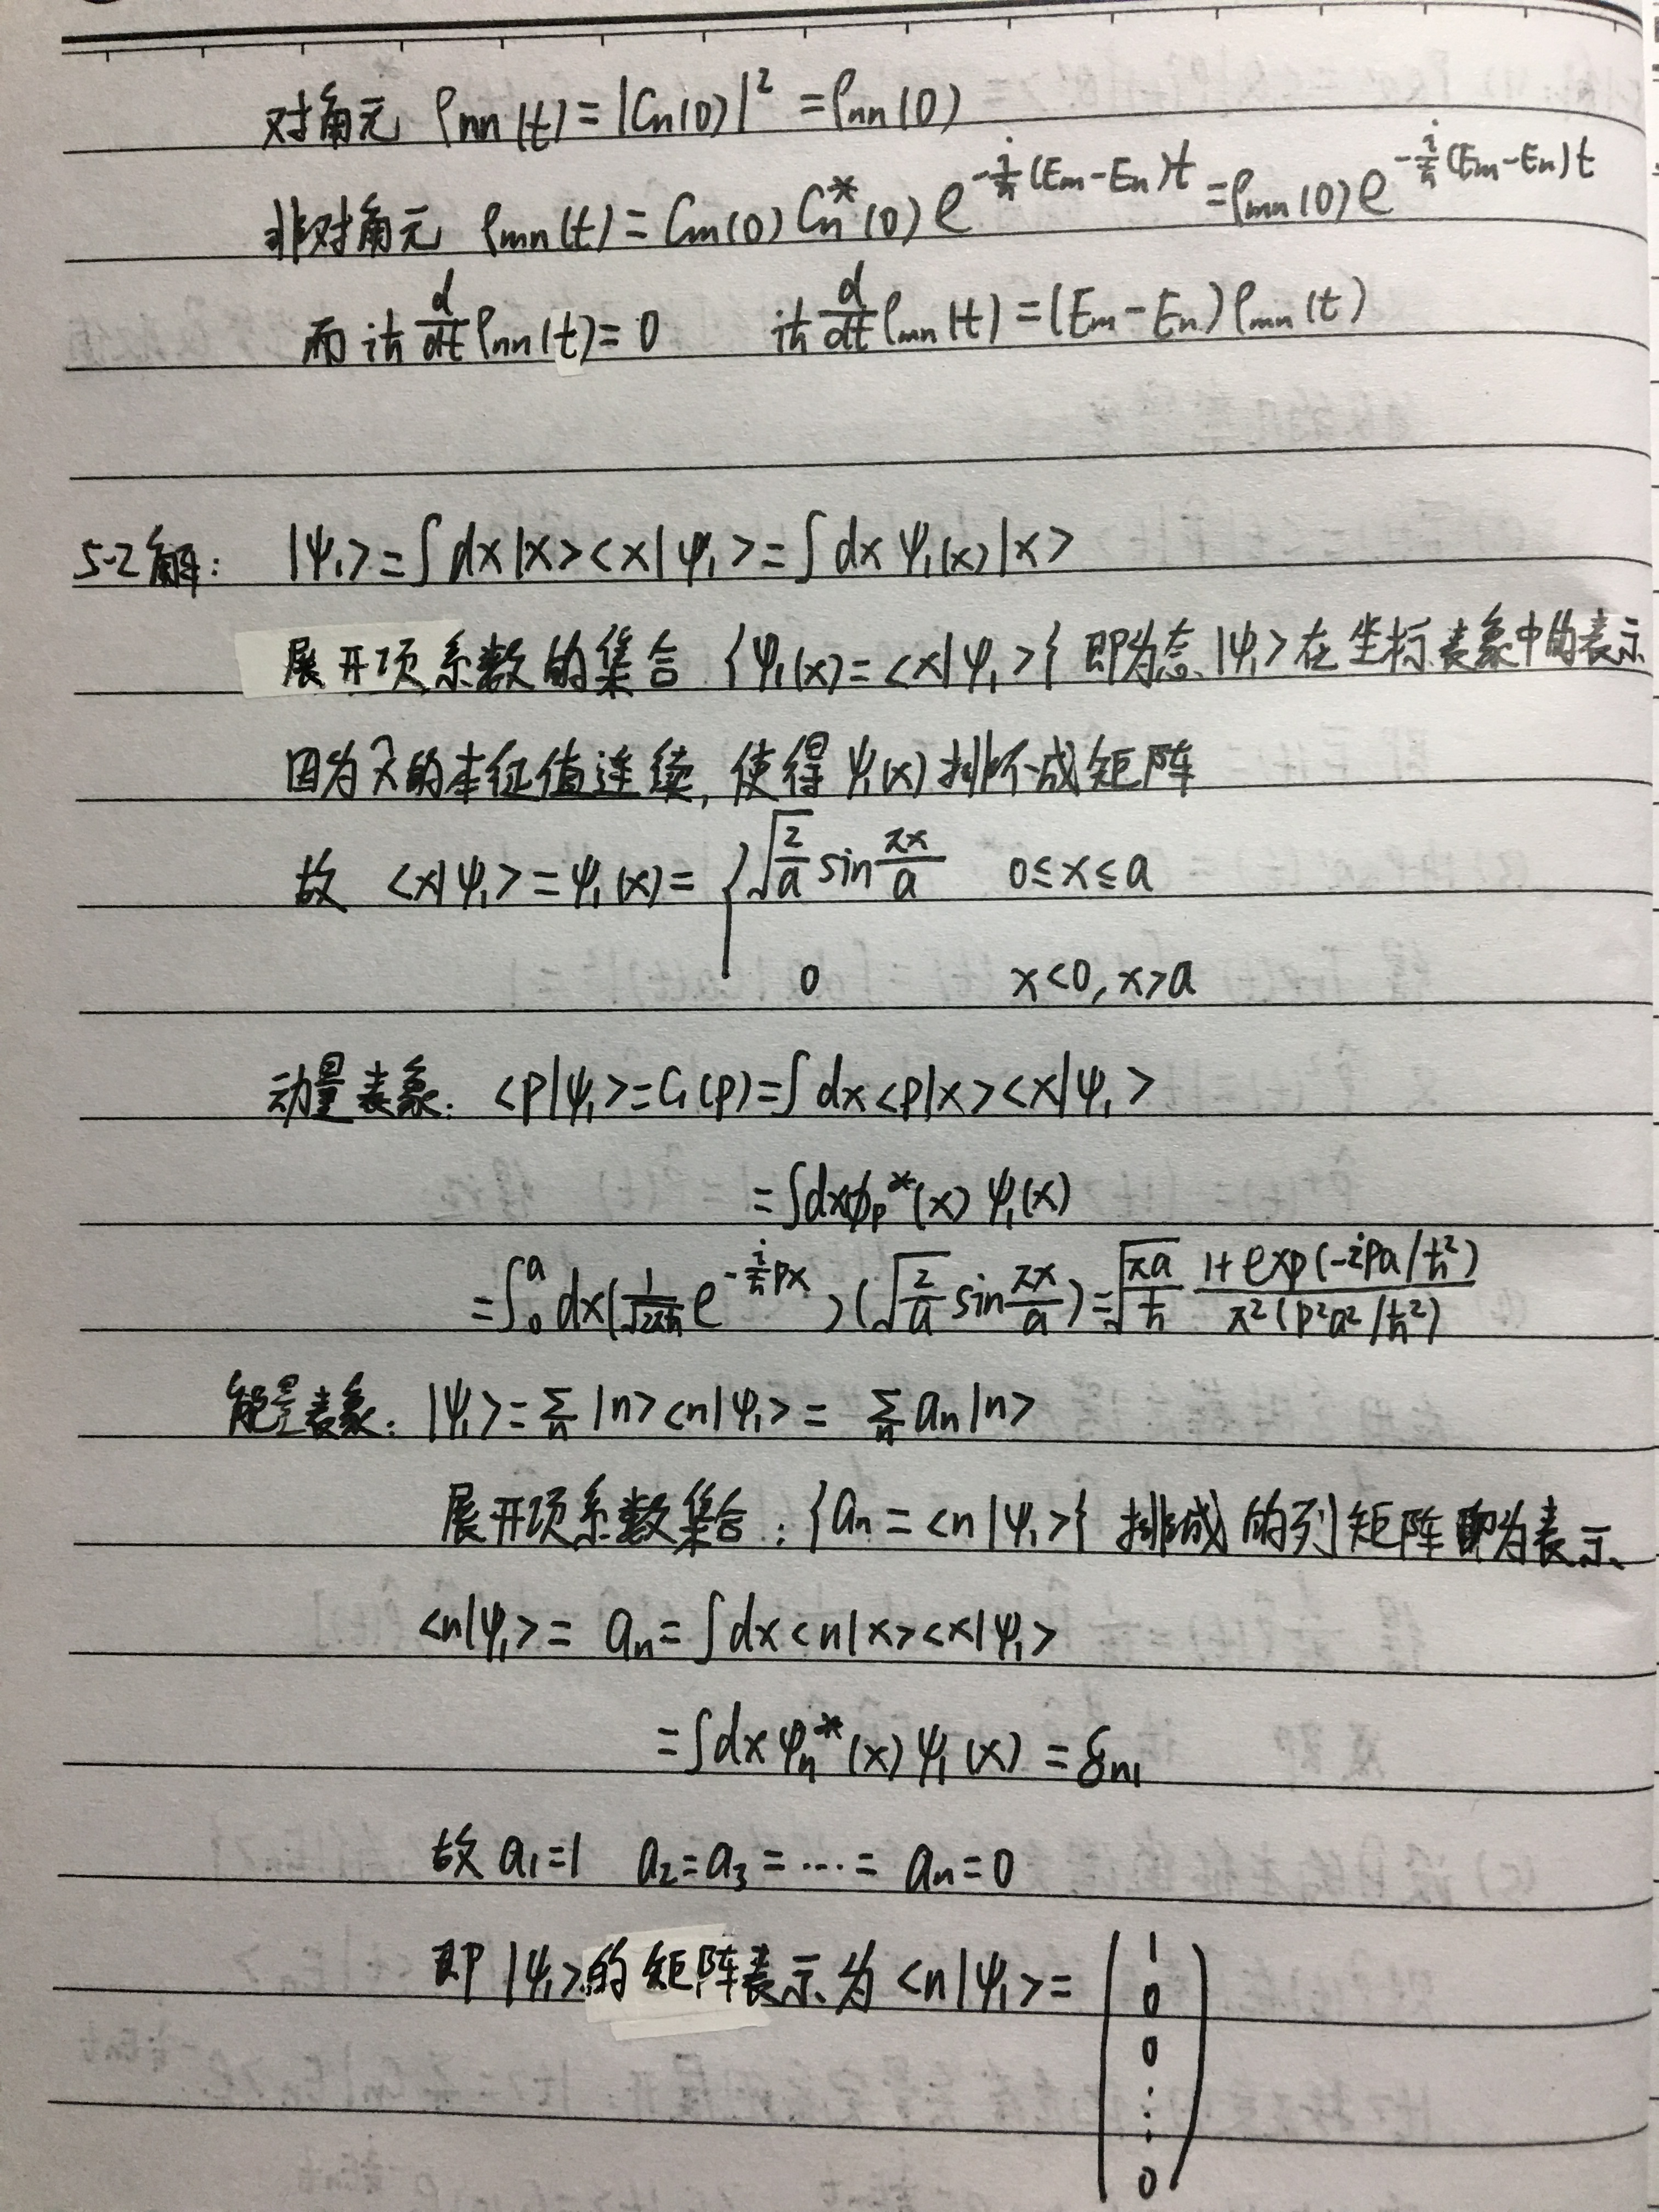 对角元 ρnn(t)=|Cn(0)|²=ρnn(0)
非对角元 ρmn(t)=Cm(0)Cn*(0)e^{-i/ħ(Em-En)t}=ρmn(0)e^{-i/ħ(Em-En)t}
而 iħ d/dt ρnn(t)=0 iħ d/dt ρmn(t)=(Em-En)ρmn(t)
5-2解: |ψ₁>=∫dx|x><x|ψ₁>=∫dxψ₁(x)|x>
展开项系数的集合 {ψ₁(x)=<x|ψ₁>} 即为态|ψ₁>在坐标表象中的表示
因为x̂的本征值连续,使得ψ₁(x)排不成矩阵
故 <x|ψ₁>=ψ₁(x)={√(2/a) sin πx/a 0≤x≤a
0 x<0,x>a
动量表象: <p|ψ₁>=C₁(p)=∫dx<p|x><x|ψ₁>
=∫dxϕp*(x)ψ₁(x)
=∫₀ᵃdx(1/√(2πħ) e^{-i/ħ px})(√(2/a) sin πx/a)=√(πa/ħ) (1+exp(-ipa/ħ²))/(π²(p²a²/ħ²))
能量表象: |ψ₁>=∑n|n><n|ψ₁>=∑n an|n>
展开项系数集合:{an=<n|ψ₁>} 排成的列矩阵即为表示
<n|ψ₁>=an=∫dx<n|x><x|ψ₁>
=∫dxφn*(x)ψ₁(x)=δn1
故 a₁=1 a₂=a₃=⋯=an=0
即|ψ₁>的矩阵表示为<n|ψ₁>=(1
0
0
⋮
0)